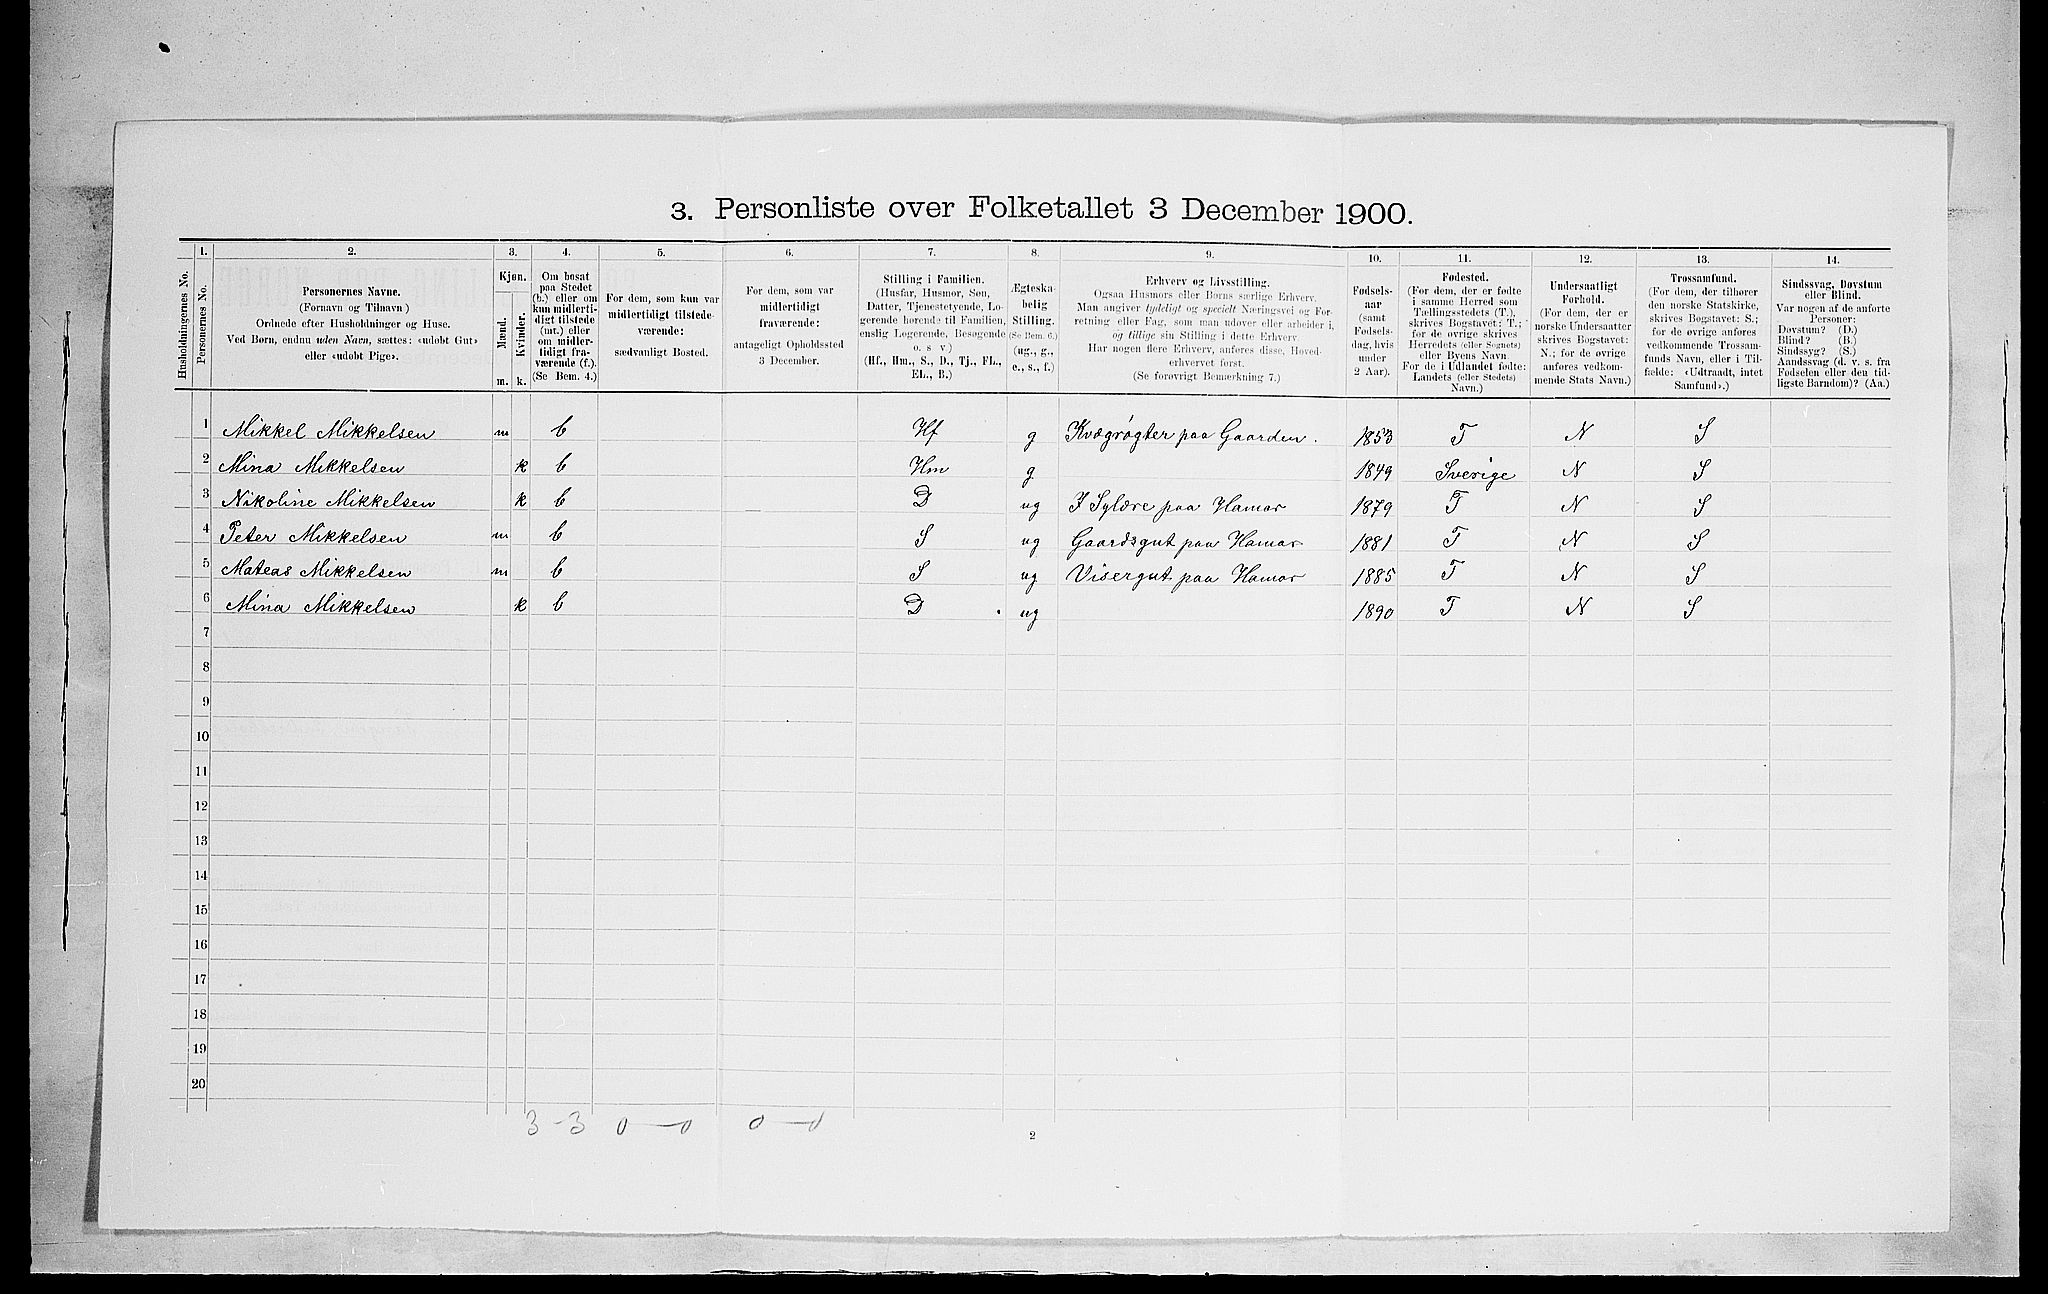 3. Personliste over Folketallet 3 December 1900.
1. 2. 3. 4. 5. 6. 7. 8. 9. 10. 11. 12. 13. 14.
Husholdningernes No.
Personernes No.
Personernes Navne.
(Fornavn og Tilnavn)
Ordnede efter Husholdninger og Huse.
Ved Børn, endnu uden Navn, sættes: «udøbt Gut»
eller «udøbt Pige».
Kjøn.
Mænd.
Kvinder.
m. k.
Om bosat
paa Stedet
(b.) eller om
kun midlerti-
digt tilstede
(mt.) eller
om midler-
tidigt fra-
værende (f.).
(Se Bem. 4.)
For dem, som kun var
midlertidigt tilstede-
værende:
sædvanligt Bosted.
For dem, som var
midlertidigt
fraværende:
antageligt Opholdssted
3 December.
Stilling i Familien.
(Husfar, Husmor, Søn,
Datter, Tjenestetyende, Lo-
gerende hørende til Familien,
enslig Logerende, Besøgende
o. s. v.)
(Hf., Hm., S., D., Tj., FL.,
EL., B.)
Ægteska-
belig
Stilling.
(Se Bem. 6.)
(ug., g.,
e., s., f.)
Erhverv og Livsstilling.
Ogsaa Husmors eller Børns særlige Erhverv.
Man angiver tydeligt og specielt Næringsvei og For-
retning eller Fag, som man udøver eller arbeider i,
og tillige sin Stilling i dette Erhverv.
Har nogen flere Erhverv, anføres disse, Hoved-
erhvervet først.
(Se forøvrigt Bemærkning 7.)
Fødsels-
aar
(samt
Fødsels-
dag, hvis
under
2 Aar).
Fødested.
(For dem, der er fødte
i samme Herred som
Tællingsstedets (T.),
skrives Bogstavet: T.;
for de øvrige skrives
Herredets (eller Sognets)
eller Byens Navn.
For de i Udlandet fødte:
Landets (eller Stedets)
Navn.)
Undersaatligt
Forhold.
(For dem, der er
norske Undersaatter
skrives Bogstavet:
N.; for de øvrige
anføres vedkom-
mende Stats Navn.)
Trossamfund.
(For dem, der tilhører
den norske Statskirke,
skrives Bogstavet: S.;
for de øvrige anføres
vedkommende Trossam-
funds Navn, eller i Til-
fælde: «Udtraadt, intet
Samfund».)
Sindssvag, Døvstum
eller Blind.
Var nogen af de anførte
Personer:
Døvstum? (D.)
Blind? (B.)
Sindssyg? (S.)
Aandssvag (d. v. s. fra
Fødselen eller den tid-
ligste Barndom)? (Aa.)
1 Mikkel Mikkelsen m b Hf g Kvægrøgter paa Gaarden. 1853 T N S
2 Mina Mikkelsen k b Hm g 1849 Sverige N S
3 Nikoline Mikkelsen k b D ug I Sylære paa Hamar 1879 T N S
4 Peter Mikkelsen m b S ug Gaardsgut paa Hamar 1881 T N S
5 Mateas Mikkelsen m b S ug Visergut paa Hamar 1885 T N S
6 Mina Mikkelsen k b D ug 1890 T N S
7
8
9
10
11
12
13
14
15
16
17
18
19
20
3 - 3 0 - 0 0 - 0
2